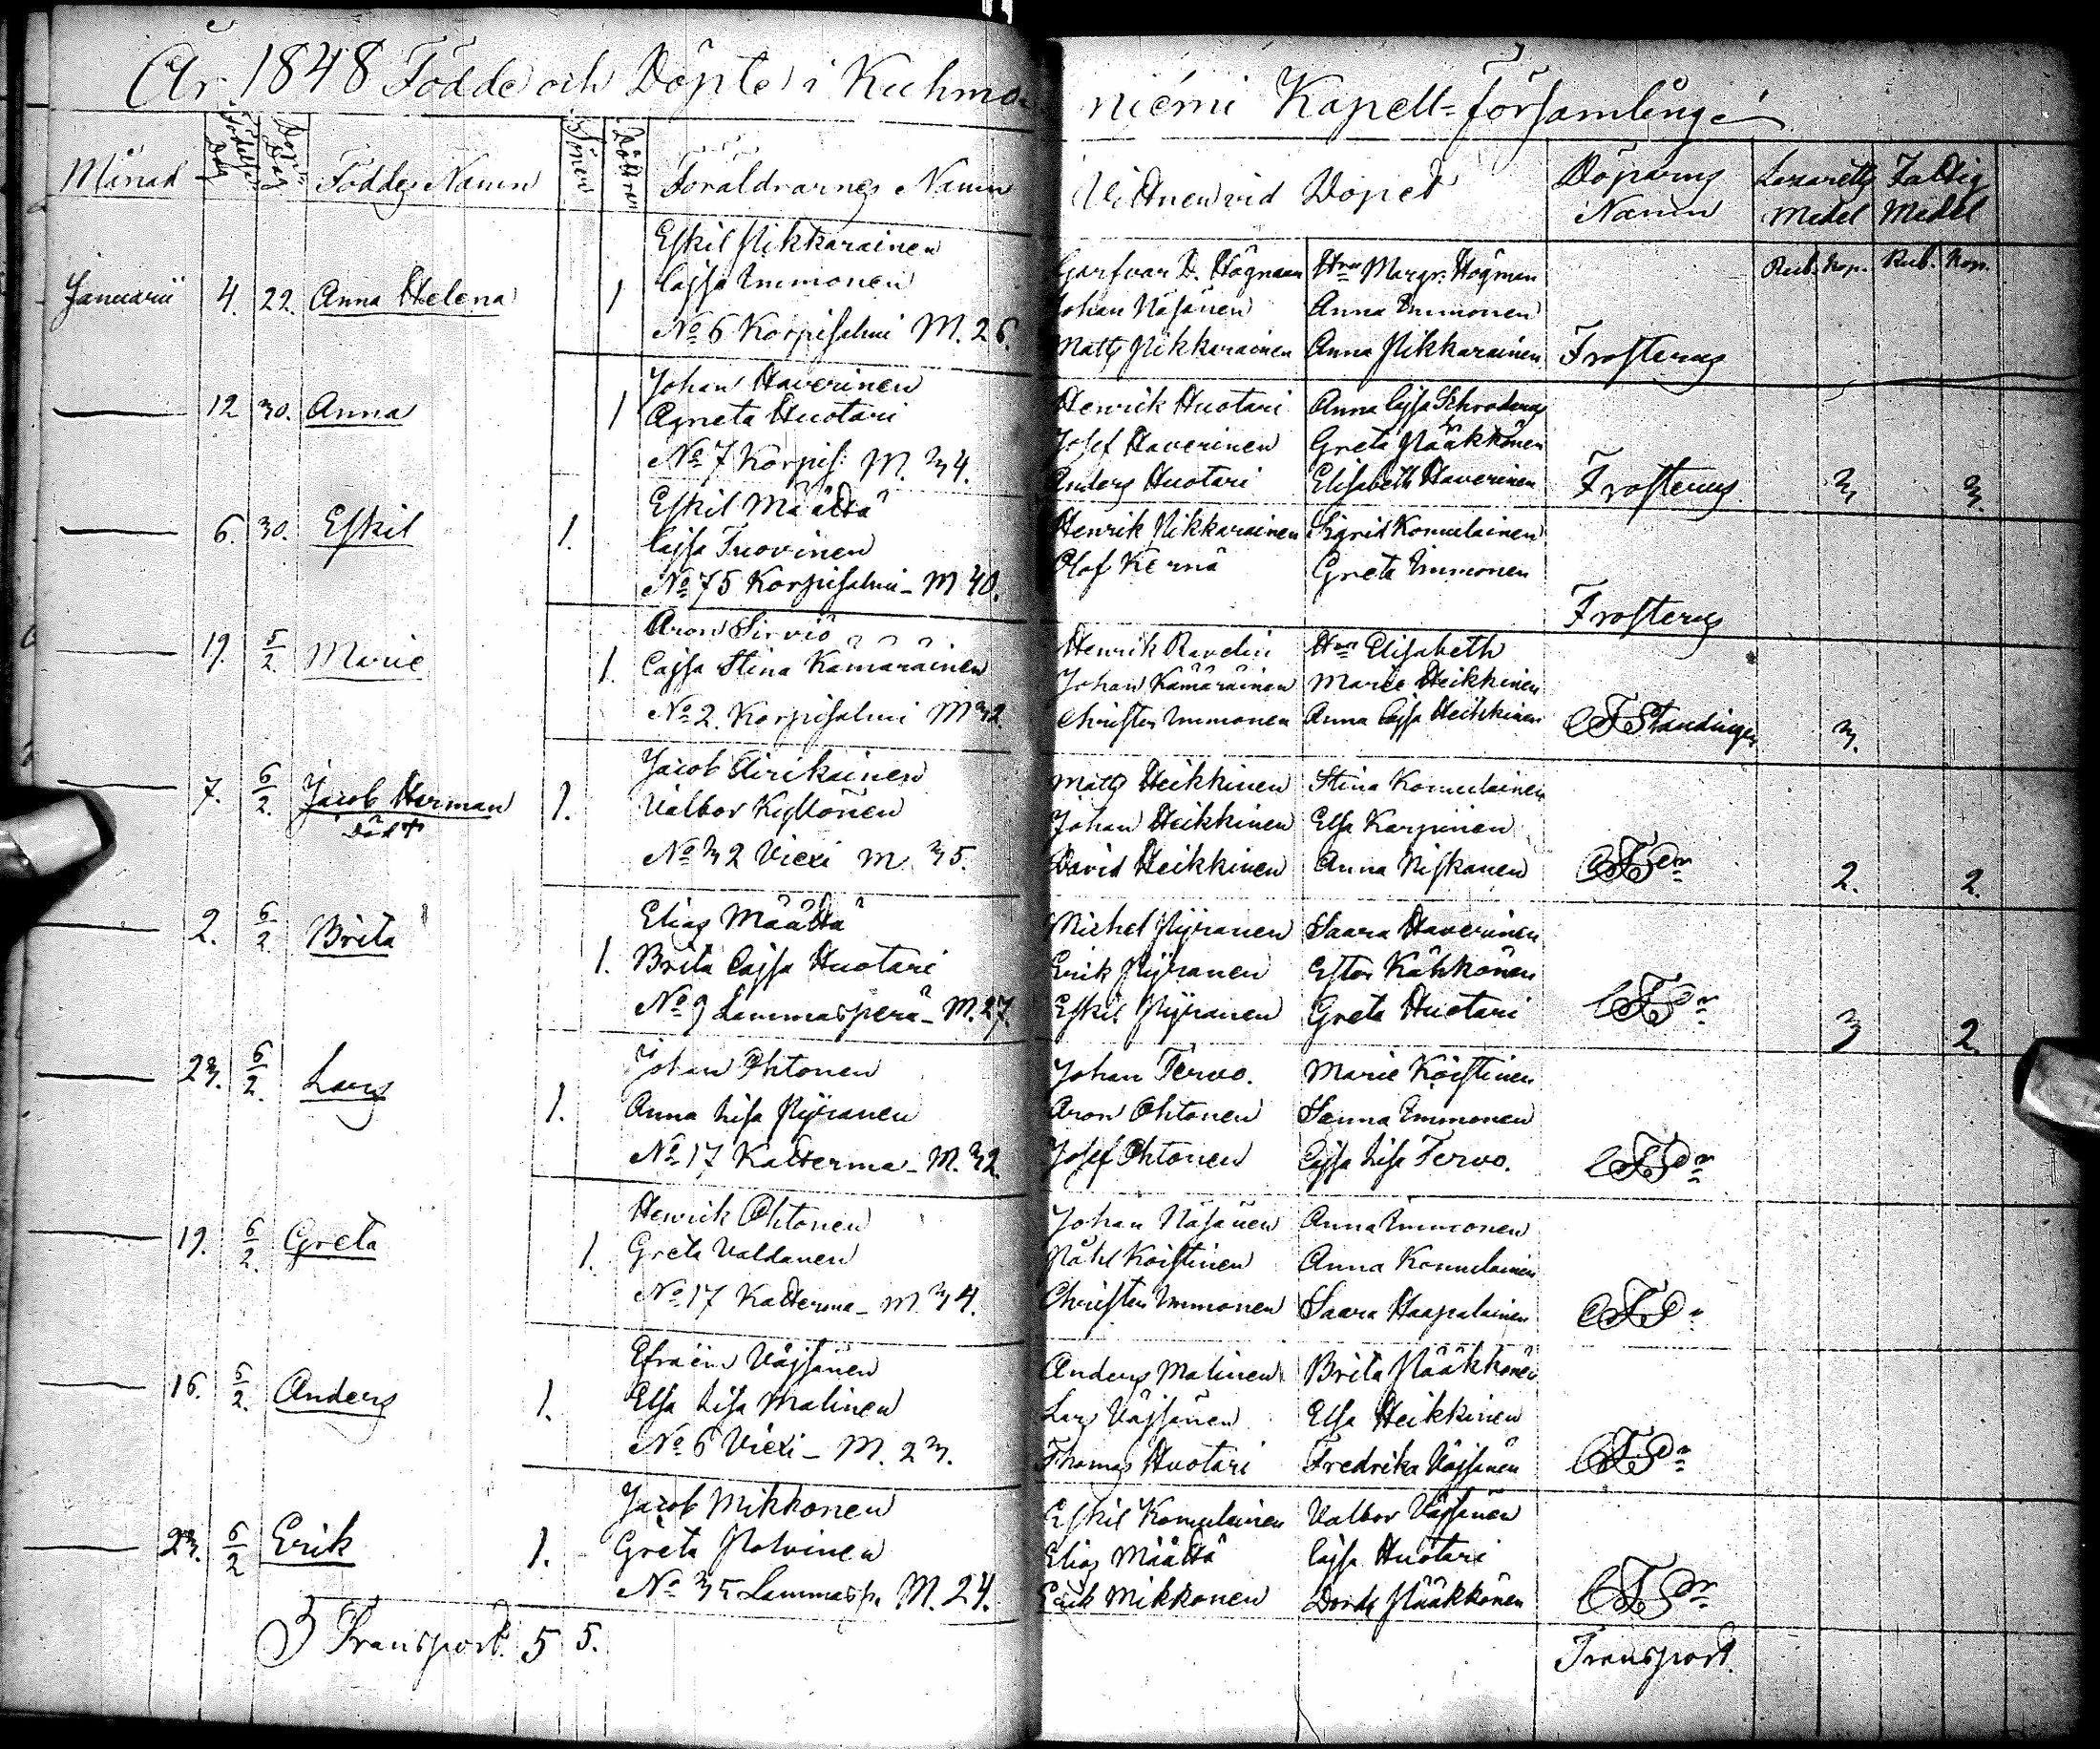 År 1848 Födde och Döpte i Kuhmo-
niemi Kapell-Församling.
Månad Födelse Dag Dop- Dag Föddes Namn Söner Döttrar Föräldrarnes Namn
Vittnen vid Dopet Döparens Namn Lazaretts Medel Fattig Medel
Rub. Kop. Rub. Kop.
Januarii 4. 22. Anna Helena 1
Eskil Pikkarainen
Cajsa Immonen
No 6 Korpisalmi M. 26.
D. Högman Hru Margr. Högman
Johan Näsänen Anna Immonen
Matts Pikkarainen Anna Pikkarainen Frosterus
— 12 30. Anna 1
Johan Haverinen
Agneta Huotari
No 7 Korpis: M. 34.
Henrik Huotari Anna Cajsa Schroderus
Josef Haverinen Greta Pääkkönen
Anders Huotari Elisabeth Haverinen Frosterus 3, 3.
— 6. 30. Eskil 1.
Eskil Määttä
Cajsa Tuovinen
No 75 Korpisalmi - M 40.
Henrik Pikkarainen Sigrid Komulainen
Olof Kernä Greta Immonen
Frosterus
— 19. 5/2 Marie 1.
Aron Sirviö
Cajsa Stina Kämäräinen
No 2. Korpisalmi M 32.
Henrik Ravelin Hru Elisabeth
Johan Kämäräinen Marie Heikkinen
Christer Immonen Anna Cajsa Heikkinen CF Standinger 3.
— 7. 6/2 Jacob Herman 1.
död +
Jacob Airikainen
Valbor Kyllönen
No 32 Viexi M. 35.
Matts Heikkinen Stina Komulainen
Johan Heikkinen Elsa Karppinen
David Heikkinen Anna Niskanen CFSdr 2. 2.
— 2. 6/2 Brita 1.
Elias Määttä
Brita Cajsa Huotari
No 9 Lammasperä - M. 27.
Michel Piiranen Saara Haverinen
Erik Piiranen Ester Kähkönen
Eskil Piiranen Greta Huotari CFSdr 3 2.
— 23. 6/2. Lars 1.
Johan Ohtonen
Anna Lisa Piiranen
No 17 Katterma - M. 32
Johan Tervo. Marie Koistinen
Aron Ohtonen Sanna Immonen
Josef Ohtonen Cajsa Lisa Tervo. CFSdr
— 19. 6/2. Greta 1.
Henrik Ohtonen
Greta Valdanen
No 17 Katterma - M. 34.
Johan Näsänen Anna Immonen
Påhl Koistinen Anna Komulainen
Christer Immonen Saara Haapalainen CFSdr
— 16. 6/2. Anders 1.
Efraim Väjsänen
Elsa Lisa Malinen
No 6 Viexi - M. 23.
Anders Malinen Brita Pääkkönen
Lars Väjsänen Elsa Heikkinen
Thomas Huotari Fredrika Väjsänen CFSdr
— 23. 6/2 Erik 1.
Jacob Mikkonen
Greta Polvinen
No 35 Lammasp. M. 24.
Eskil Komulainen Valbor Väjsänen
Elias Määttä Cajsa Huotari
Erik Mikkonen Dorde Pääkkönen CFSdr
Transport. 5 5.
Transport.